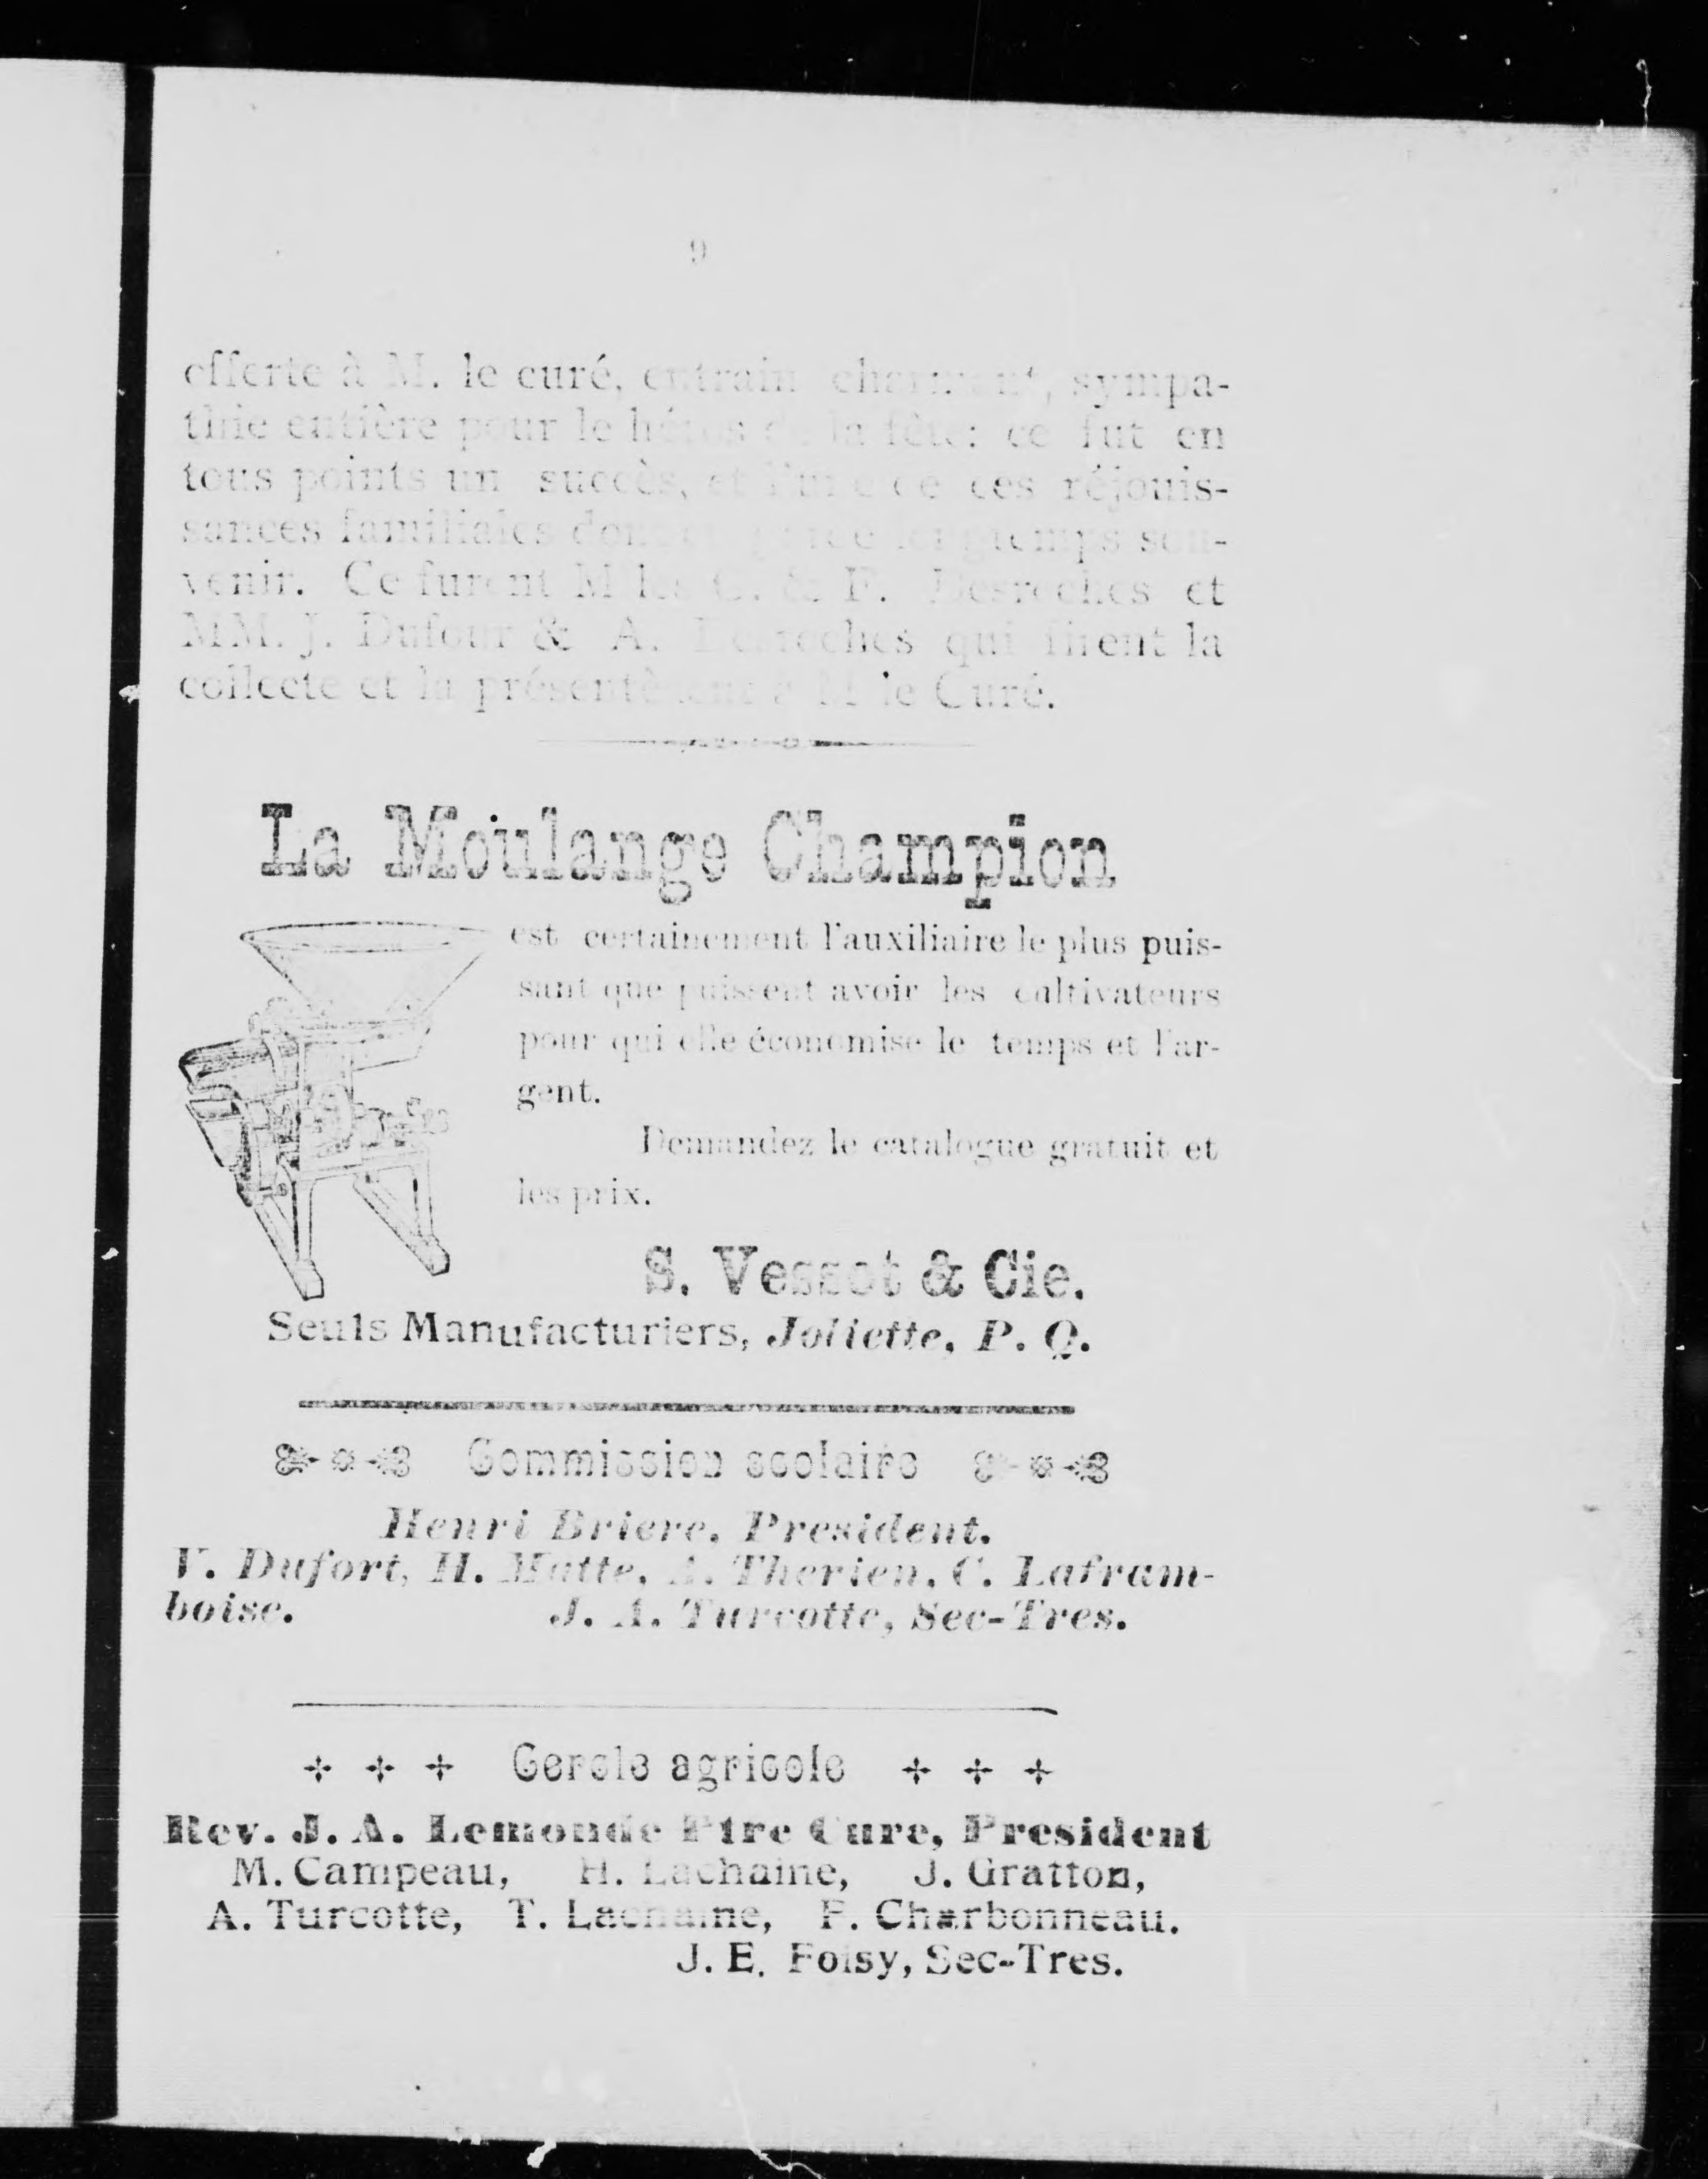 9
offerte à M. le curé, entrain charmant, sympa-
thie entière pour le héros de la fête: ce fut en
tous points un succès, et l'une de ces réjouis-
sances familiales dont longtemps sou-
venir. Ce furent Mlles C. & F. Desroches et
MM. J. Dufour & A. Desroches qui firent la
collecte et la présentèrent à M le Curé.
La Moulange Champion
est certainement l'auxiliaire le plus puis-
sant que puissent avoir les cultivateurs
pour qui elle économise le temps et l'ar-
gent.
Demandez le catalogue gratuit et
les prix.
S. Vessot & Cie.
Seuls Manufacturiers, Joliette, P. Q.
Commission scolaire
Henri Briere, President.
V. Dufort, H. Matte, A. Therien, C. Lafram-
boise. J. A. Turcotte, Sec-Tres.
Cercle agricole
Rev. J. A. Lemonde Ptre Cure, President
M. Campeau, H. Lachaine, J. Gratton,
A. Turcotte, T. Lachaine, F. Charbonneau.
J. E. Foisy, Sec-Tres.